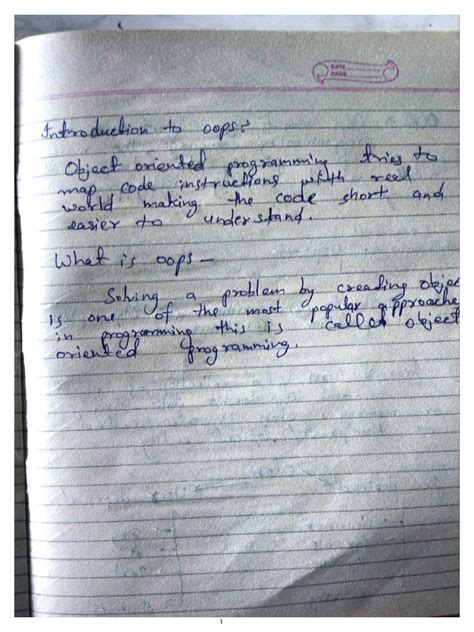 DATE
PAGE
Introduction to oops :-
Object oriented programming tries to
map code instructions with real
world making the code short and
easier to understand.
What is oops -
Solving a problem by creating objec
is one of the most popular approache
in programming this is called object
oriented programming.
1